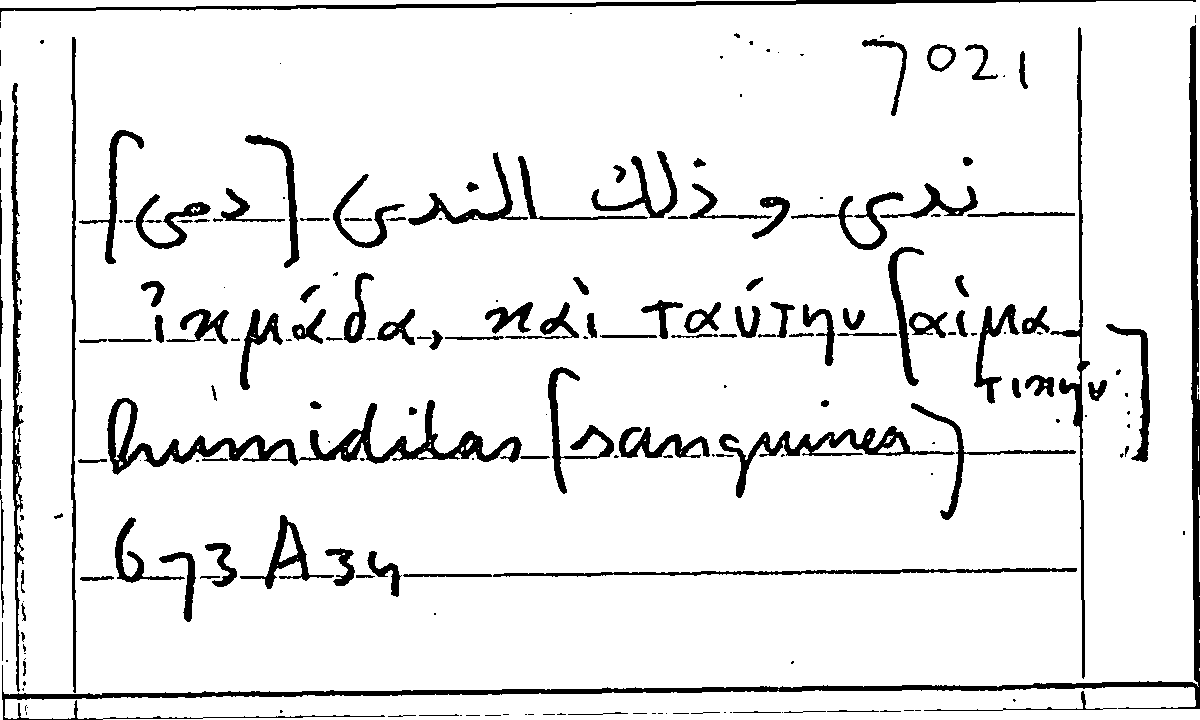 7021
ندى و ذلك الندى [دمى]
ἰκμάδα, καὶ ταύτην [αἱμα-
τικήν]
humiditas [sanguinea]
673 A 34